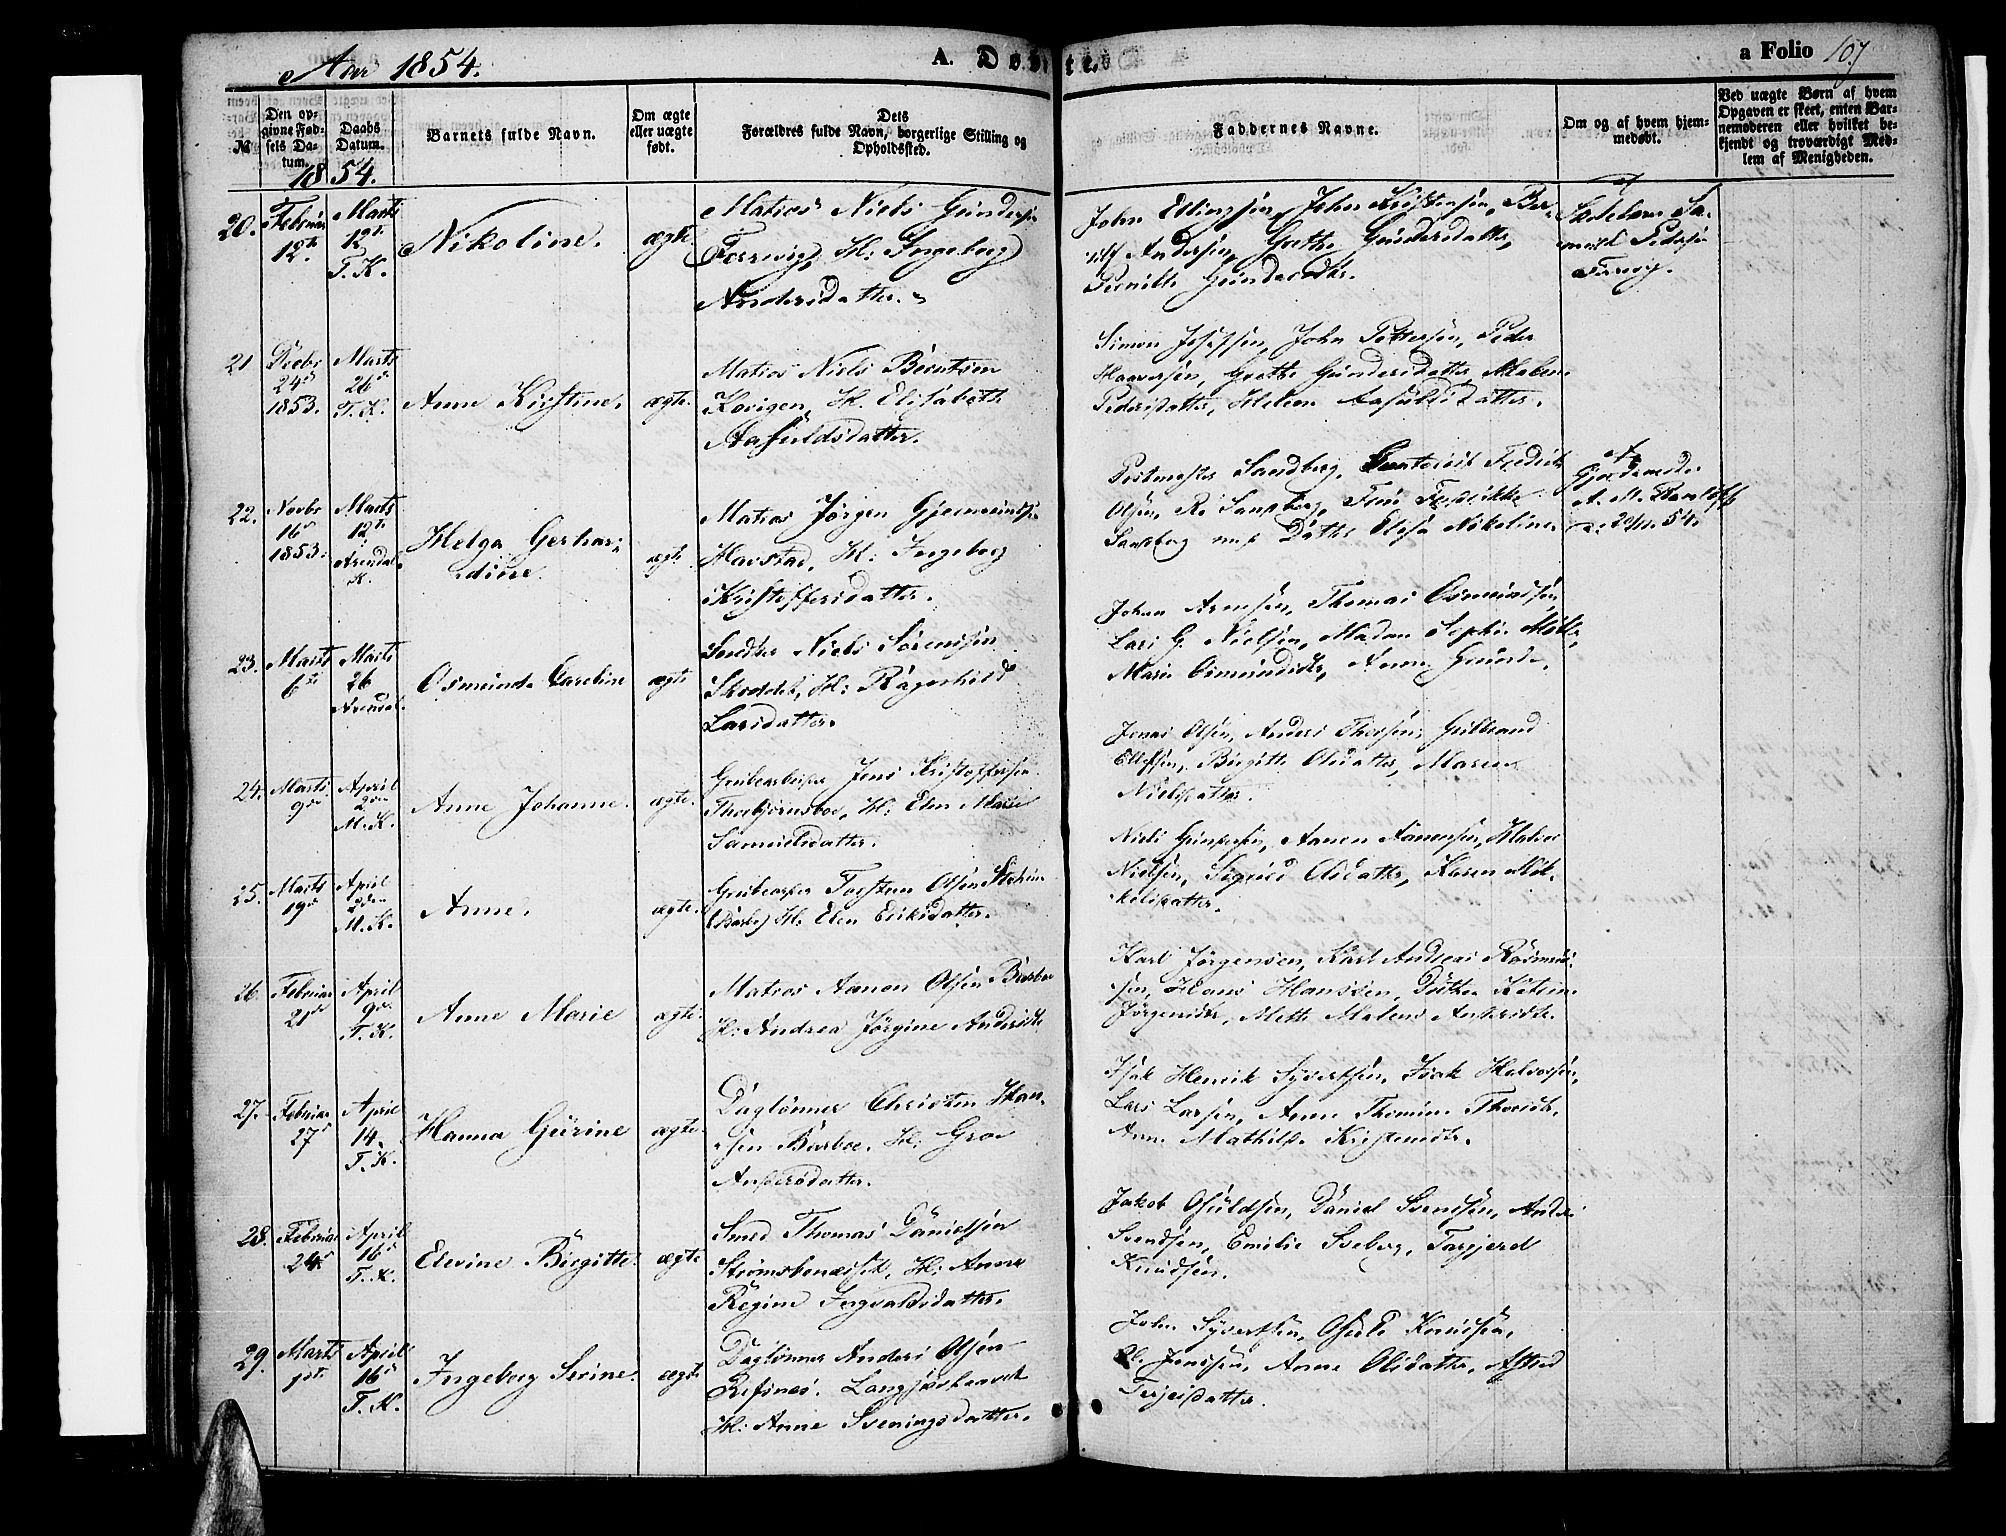 Aar 1854.
A. Døbte.
a Folio 107
№
Den opgivne Fødsels Datum.
Daabs Datum.
Barnets fulde Navn.
Om ægte eller uægte født.
Dets Forældres fulde Navn, borgerlige Stilling og Opholdssted.
Faddernes Navne.
Om og af hvem hjemmedøbt.
Ved uægte Børn af hvem Opgaven er skeet, enten Barnemoderen eller hvilket bekjendt og troværdigt Medlem af Menigheden.
1854.
20.
Februar
12te
Marts
12te
T. K.
Nikoline.
ægte
Matros Niels Gundersen
Færvig, H: Ingeborg
Andersdatter.
John Ellingsen, John Kristensen, Ber-
ulf Andersen, Grethe Gundersdatter,
Pernille Gundersdtr.
af
Skoleholder Sa-
muel Pedersen
Færvig.
21
Decbr
24de
1853.
Marts
26de
T. K.
Anne Kirstine.
ægte.
Matros Niels Berntsen
Kovigen, H. Elisabeth
Aasuldsdatter.
Simon Josefsen, John Pettersen, Peder
Haaversen, Grethe Gundersdatter, Maben
Pedersdatter, Helene Aasuldsdatter.
22.
Novbr
16de
1853.
Marts
12te
Arendal
K.
Helga Gerhar-
dine.
ægte.
Matros Jørgen Gjermundsen
Havstad, H: Ingeborg
Kristoffersdatter.
Postmester Sandberg, Fredrik
Olsen, Sandberg, Fru Fredrikke
Sandberg Dathe Elise Nikoline
af
Gjordemoder
A. M.
54.
23.
Marts
6te
Marts
26
Arendal
Osmunde Caroline
ægte
Snedker Niels Sørensen
Skoddet, H: Ragnhild
Larsdatter.
Johan Arnesen, Thomas Osmundsen,
Lars G. Nielsen, Madam Sophie Møller,
Marie Osmundsdtr, Anne Gunde.
24.
Marts
9de
April
2den
M. K.
Anne Johanne.
ægte.
Grubearbeider Jens Kristoffersen
Thorbjørnsboe, H: Elen Marie
Samuelsdatter.
Jonas Olsen, Anders Thorsen, Gulbrand
Ellefsen, Birgitte Olsdatter, Maren
Nielsdatter.
25.
Marts
19de
April
2den
M. K.
Anne.
ægte.
Grubearbr Torsten Olsen
Barbo, H: Elen Eriksdatter.
Niels Gundersen, Aanon Aanonsen, Mathias
Nielsen, Sigrid Olsdatter, Karen Mik-
kelsdatter.
26.
Februar
21de
April
9de
T. K.
Anne Marie
ægte.
Matros Aanon Olsen Barboe
H: Andrea Jørgine Andersdtr
Karl Jørgensen, Karl Andreas Rasmus-
sen, Hans Hanssen, Dorthea Katrine
Jørgensdtr, Mette Malene Andersdtr.
27.
Februar
27de
April
14.
T. K.
Hanna Gurine
ægte.
Daglønner Christen Han-
sen Barboe, H: Groe
Andersdatter.
Isak Henrik Syvertsen, Isak Halvorsen,
Lars Larsen, Anne Thomine Thorsdtr,
Anne Mathilde Kristensdtr.
28.
Februar
24de
April
16de
T. K.
Elevine Birgitte.
ægte
Smed Thomas Danielsen
Strømsbonæsset, H: Anne
Regine Ingvaldsdatter.
Jakob Osuldsen, Daniel Svensen, Anders
Svendsen, Emilie Sveberg, Torgjerd
Knudsen.
29.
Marts
1ste
April
16de
T. K.
Ingeborg Serine.
ægte
Daglønner Anders Olsen
Refsnes, Langsæehavet
H: Anne Sveningsdatter.
John Syvertsen, Osuld Knudsen,
Jensen, Anne Olsdatter, Astrid
Terjesdatter.